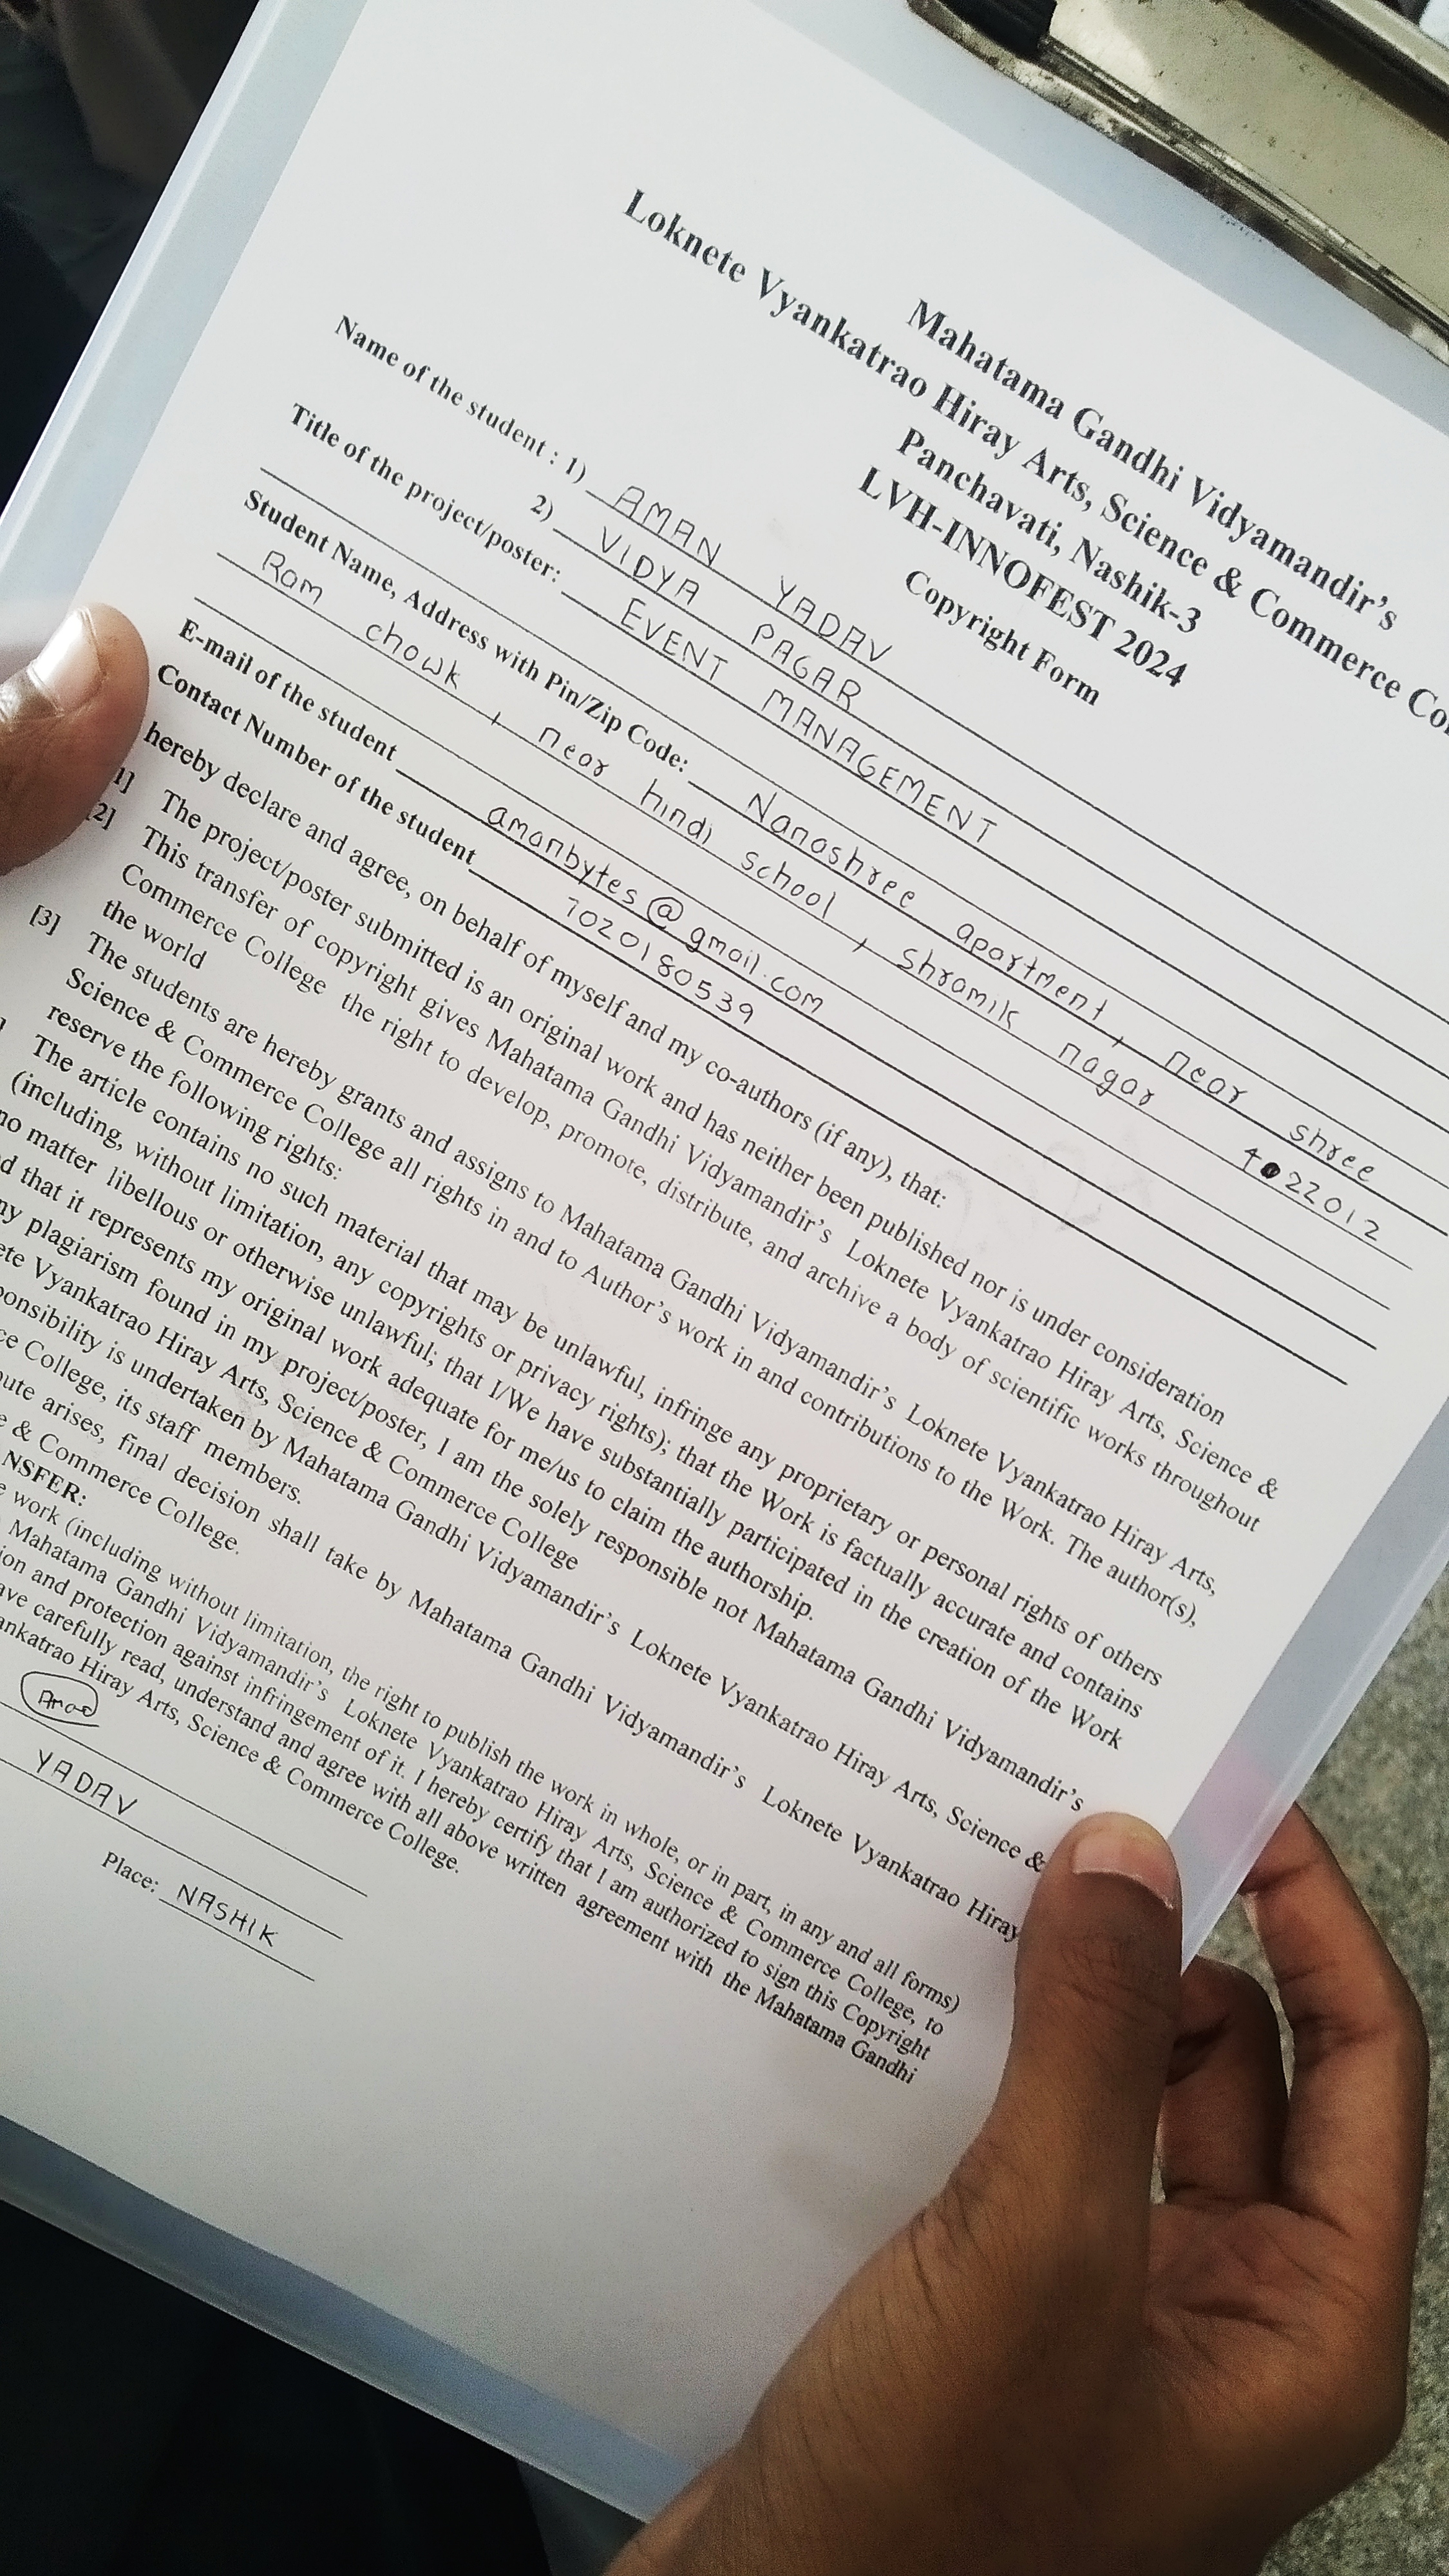 Mahatama Gandhi Vidyamandir's
Loknete Vyankatrao Hiray Arts, Science & Commerce Co
Panchavati, Nashik-3
LVH-INNOFEST 2024
Copyright Form
Name of the student : 1) AMAN YADAV
2) VIDYA PAGAR
Title of the project/poster: EVENT MANAGEMENT
Student Name, Address with Pin/Zip Code: Nanashree apartment, near shree
Ram chowk, near hindi school, shramik nagar 422012
E-mail of the student amanbytes@gmail.com
Contact Number of the student 7020180539
hereby declare and agree, on behalf of myself and my co-authors (if any), that:
1] The project/poster submitted is an original work and has neither been published nor is under consideration
[2] This transfer of copyright gives Mahatama Gandhi Vidyamandir's Loknete Vyankatrao Hiray Arts, Science &
Commerce College the right to develop, promote, distribute, and archive a body of scientific works throughout
the world
[3] The students are hereby grants and assigns to Mahatama Gandhi Vidyamandir's Loknete Vyankatrao Hiray Arts,
Science & Commerce College all rights in and to Author's work in and contributions to the Work. The author(s),
reserve the following rights:
] The article contains no such material that may be unlawful, infringe any proprietary or personal rights of others
(including, without limitation, any copyrights or privacy rights); that the Work is factually accurate and contains
no matter libellous or otherwise unlawful; that I/We have substantially participated in the creation of the Work
d that it represents my original work adequate for me/us to claim the authorship.
ny plagiarism found in my project/poster, I am the solely responsible not Mahatama Gandhi Vidyamandir's
ete Vyankatrao Hiray Arts, Science & Commerce College
ponsibility is undertaken by Mahatama Gandhi Vidyamandir's Loknete Vyankatrao Hiray Arts, Science &
ce College, its staff members.
ute arises, final decision shall take by Mahatama Gandhi Vidyamandir's Loknete Vyankatrao Hiray
e & Commerce College.
NSFER:
e work (including without limitation, the right to publish the work in whole, or in part, in any and all forms)
Mahatama Gandhi Vidyamandir's Loknete Vyankatrao Hiray Arts, Science & Commerce College, to
ion and protection against infringement of it. I hereby certify that I am authorized to sign this Copyright
ave carefully read, understand and agree with all above written agreement with the Mahatama Gandhi
ankatrao Hiray Arts, Science & Commerce College.
YADAV
Place: NASHIK